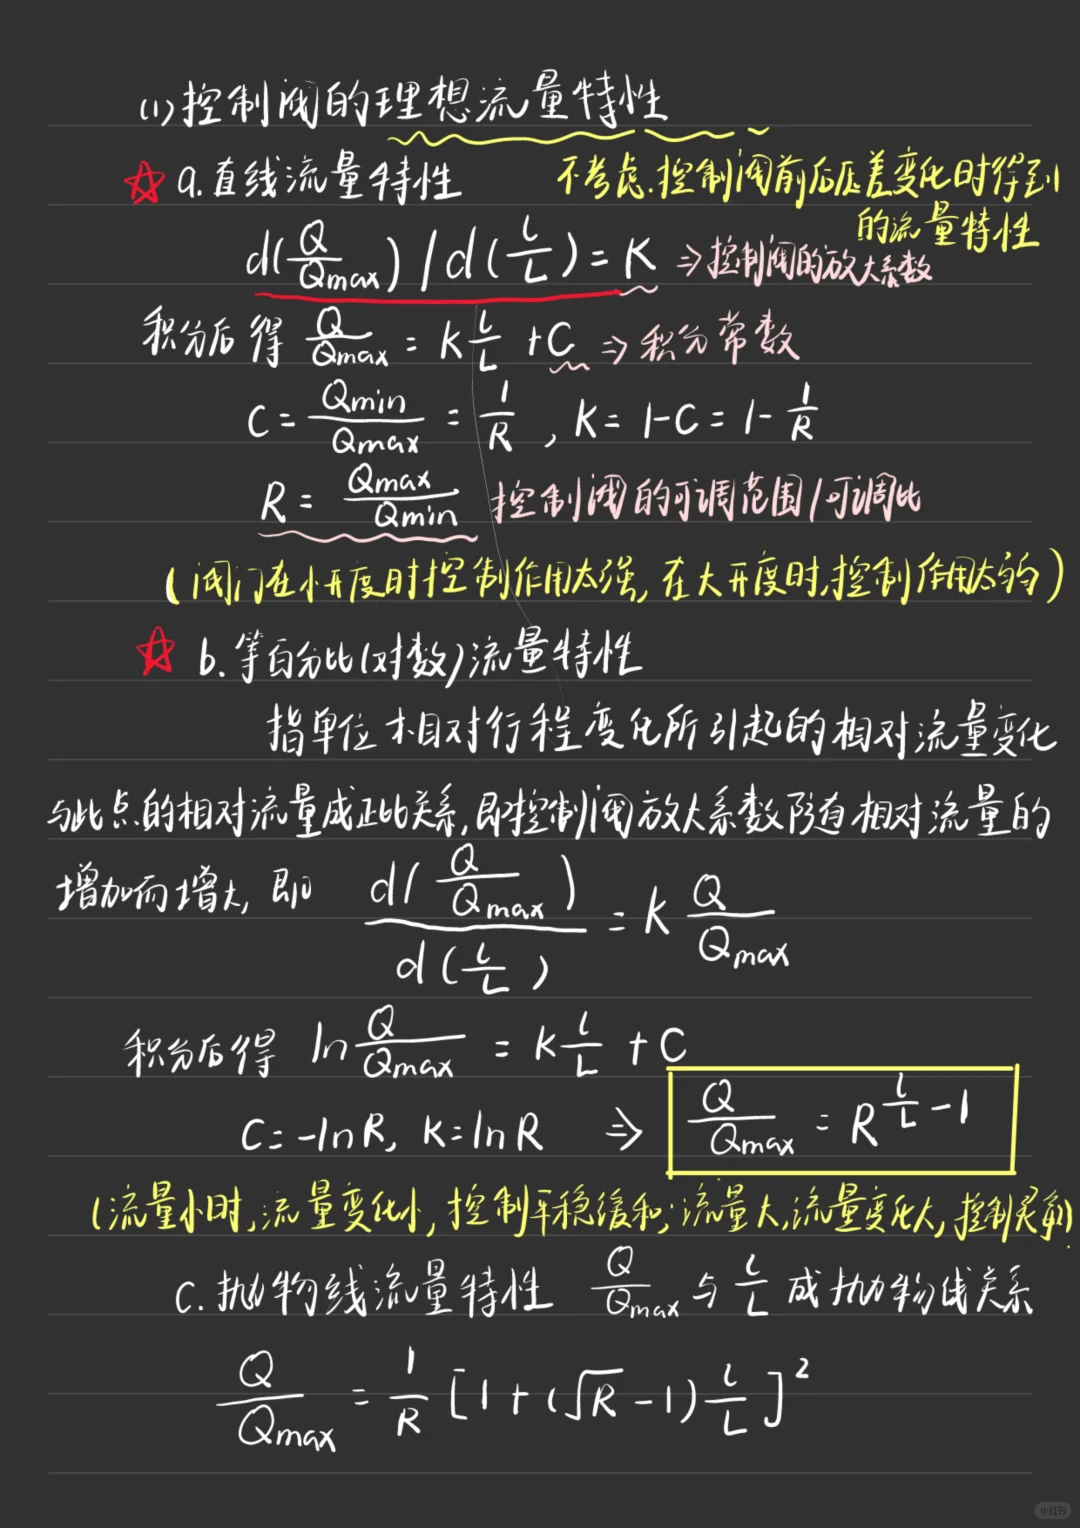 (1)控制阀的理想流量特性
a.直线流量特性
不考虑控制阀前后压差变化时得到
的流量特性
d(Q/Qmax)/d(l/L)=K ⇒控制阀的放大系数
积分后得 Q/Qmax = K l/L +C ⇒积分常数
C= Qmin/Qmax = 1/R , K= 1-C = 1- 1/R
R= Qmax/Qmin 控制阀的可调范围/可调比
(阀门在小开度时控制作用太强,在大开度时,控制作用太弱)
b.等百分比(对数)流量特性
指单位相对行程变化所引起的相对流量变化
与此点的相对流量成正比关系,即控制阀放大系数随着相对流量的
增加而增大,即 d(Q/Qmax)/d(l/L) = K Q/Qmax
积分后得 ln Q/Qmax = K l/L + C
C=-lnR, K=lnR ⇒ Q/Qmax = R^(l/L -1)
(流量小时,流量变化小,控制平稳缓和;流量大,流量变化大,控制灵敏)
c.抛物线流量特性 Q/Qmax 与 l/L 成抛物线关系
Q/Qmax = 1/R [1+(√R-1) l/L]²
小红书